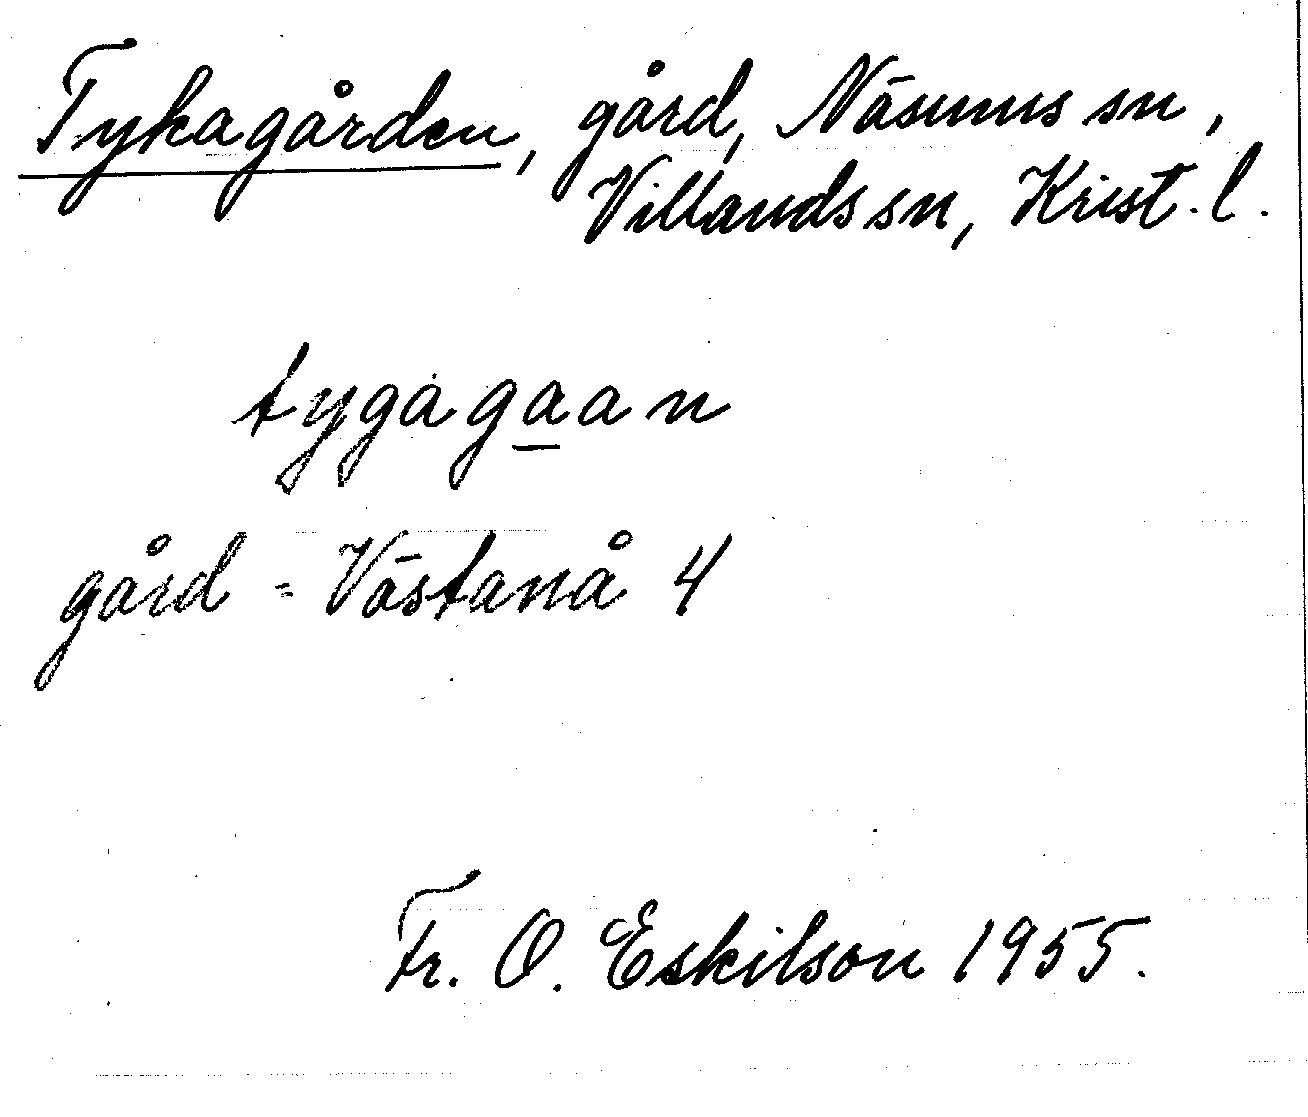 Tykagården, gård, Näsums sn,
Villands sn, Krist. l.
tygagaan
gård = Västanå 4
Fr. O. Eskilson 1955.